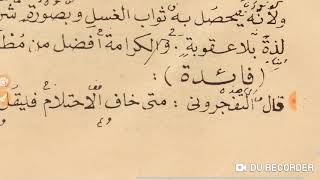 ولأنه يحصل به ثواب الغسل وبصورة
لذة بلا عقوبة . والكرامة أفضل من
( فائدة ) :
قال التفجروتى : متى خاف الاحتلام فيقل
DU RECORDER